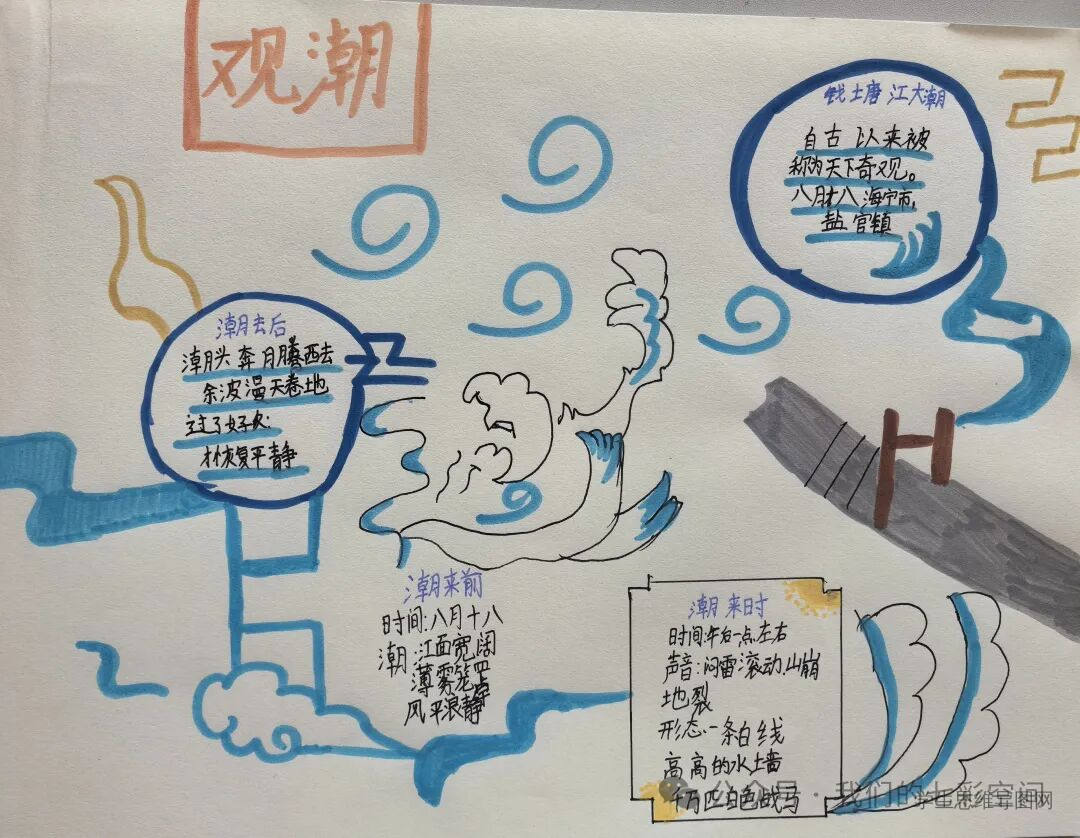 观潮
钱塘江大潮
自古以来被
称为天下奇观。
八月十八海宁市,
盐官镇
潮去后
潮头奔腾西去
余波漫天卷地
过了好久
才恢复平静
潮来前
时间:八月十八
潮:江面宽阔
薄雾笼罩
风平浪静
潮来时
时间:午后一点左右
声音:闷雷滚动.山崩
地裂
形态:一条白线
高高的水墙
千万匹白色战马
公众号·我们的七彩空间
思维导图网